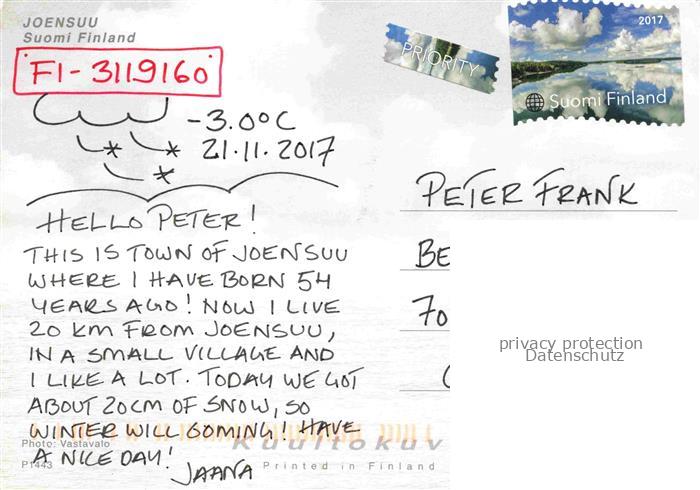 JOENSUU
Suomi Finland
FI-3119160
-3.0°C
21.11.2017
PRIORITY
2017
Suomi Finland
HELLO PETER!
THIS IS TOWN OF JOENSUU
WHERE I HAVE BORN 54
YEARS AGO! NOW I LIVE
20 KM FROM JOENSUU,
IN A SMALL VILLAGE AND
I LIKE A LOT. TODAY WE GOT
ABOUT 20CM OF SNOW, SO
WINTER WILL COMING! HAVE
A NICE DAY!
JAANA
PETER FRANK
BE
70
privacy protection
Datenschutz
Photo: Vastavalo
P1443
Kuultokuv
Printed in Finland